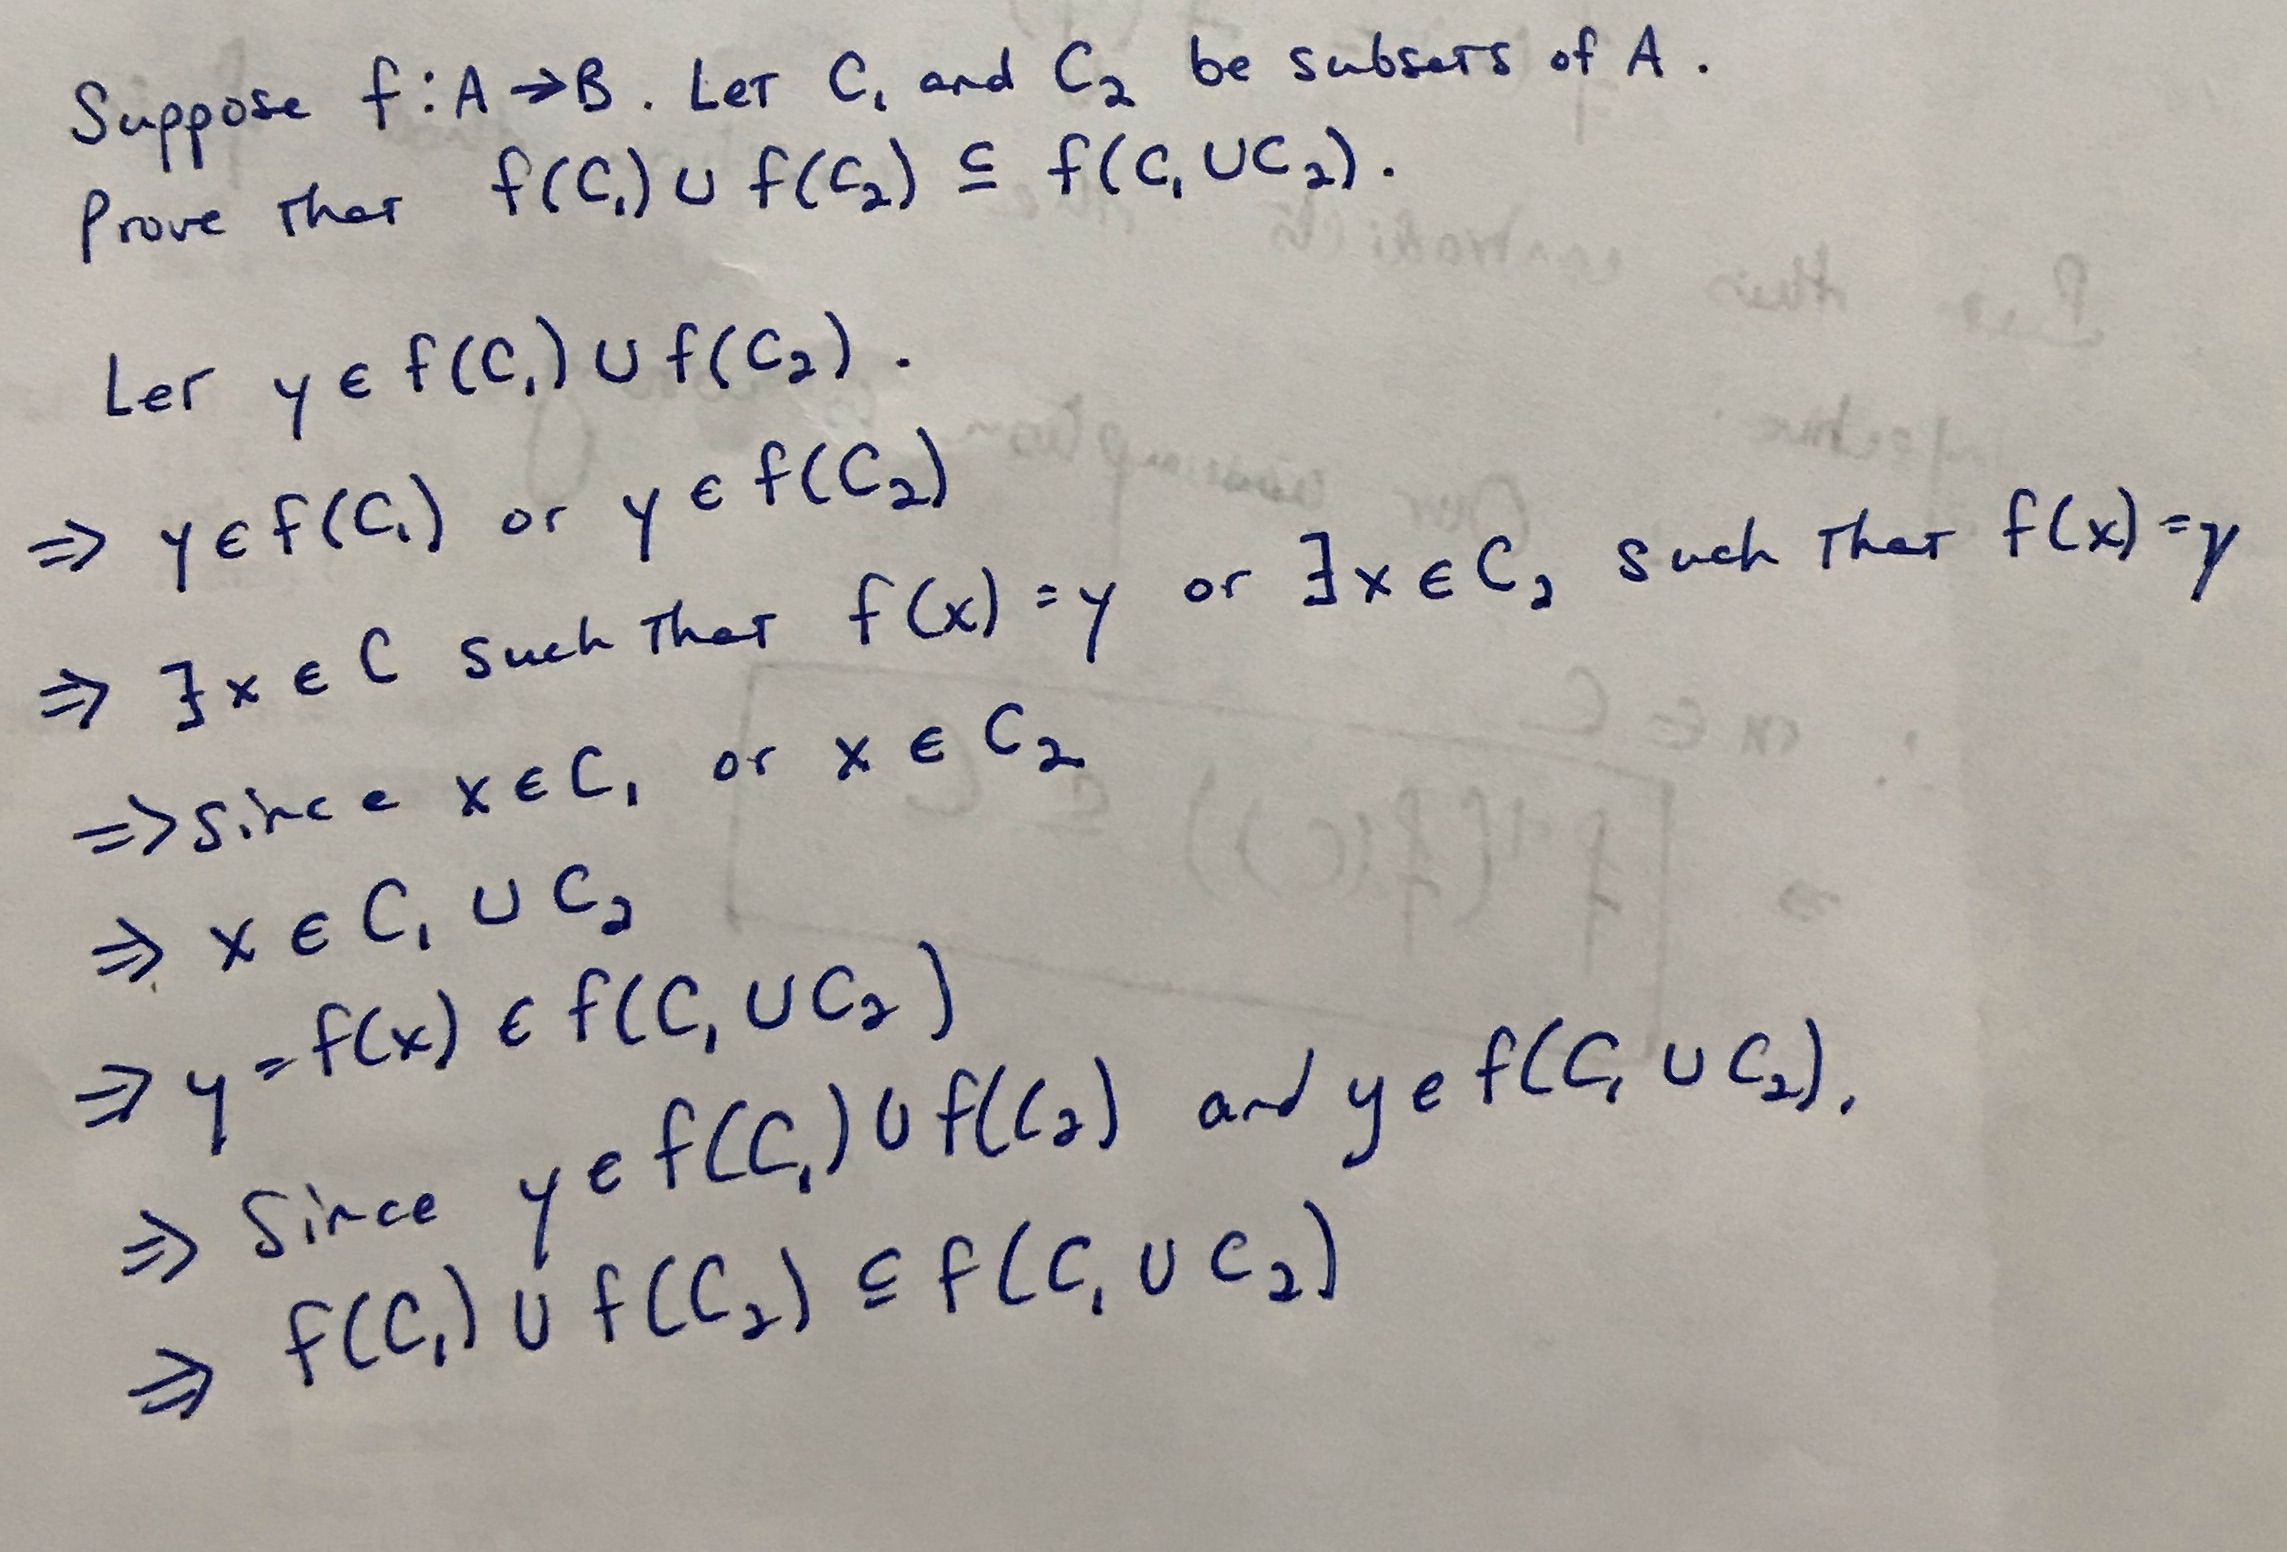 Suppose f:A→B. Let C₁ and C₂ be subsets of A.
Prove that f(C₁) ∪ f(C₂) ⊆ f(C₁ ∪ C₂).
Let y ∈ f(C₁) ∪ f(C₂).
⇒ y ∈ f(C₁) or y ∈ f(C₂)
⇒ ∃x ∈ C such that f(x) = y or ∃x ∈ C₂ such that f(x) = y
⇒ Since x ∈ C₁ or x ∈ C₂
⇒ x ∈ C₁ ∪ C₂
⇒ y = f(x) ∈ f(C₁ ∪ C₂)
⇒ Since y ∈ f(C₁) ∪ f(C₂) and y ∈ f(C₁ ∪ C₂).
⇒ f(C₁) ∪ f(C₂) ⊆ f(C₁ ∪ C₂)